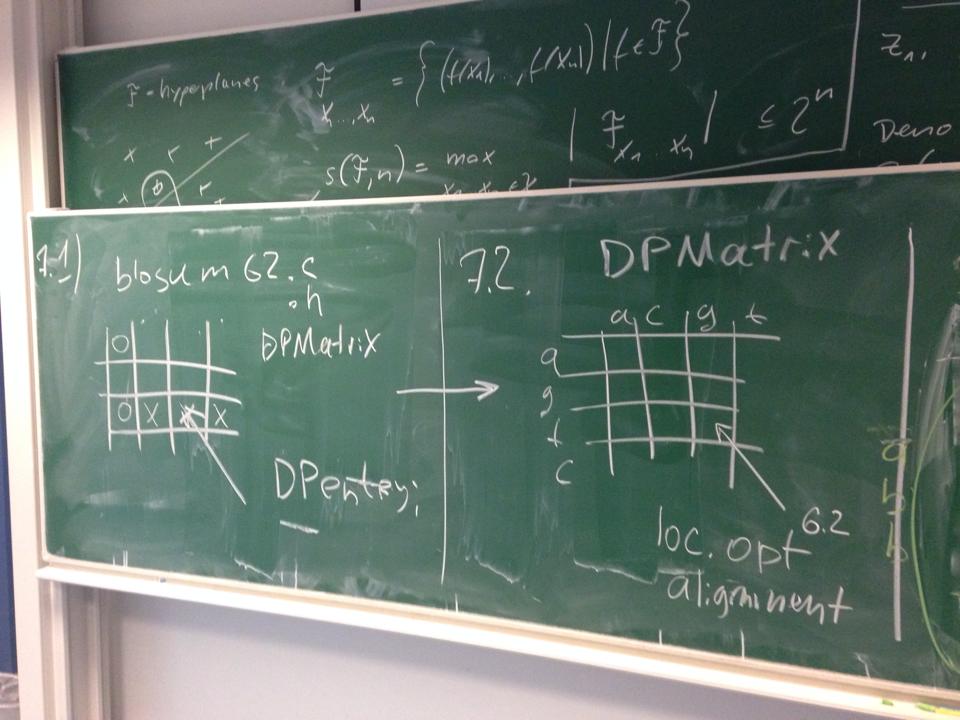 F-hyperplanes
F = {(f(x1),...,f(xn)) | f ∈ F}
x1...,xn
| F x1...xn | ≤ 2^n
s(F,n) = max
Z1,
Deno
x r +
7.1)
blosum 62.c
.h
0
DPMatrix
0 X X X
DPentry;
7.2.
DPMatrix
a c g t
a
g
t
c
6.2
loc. opt
alignment